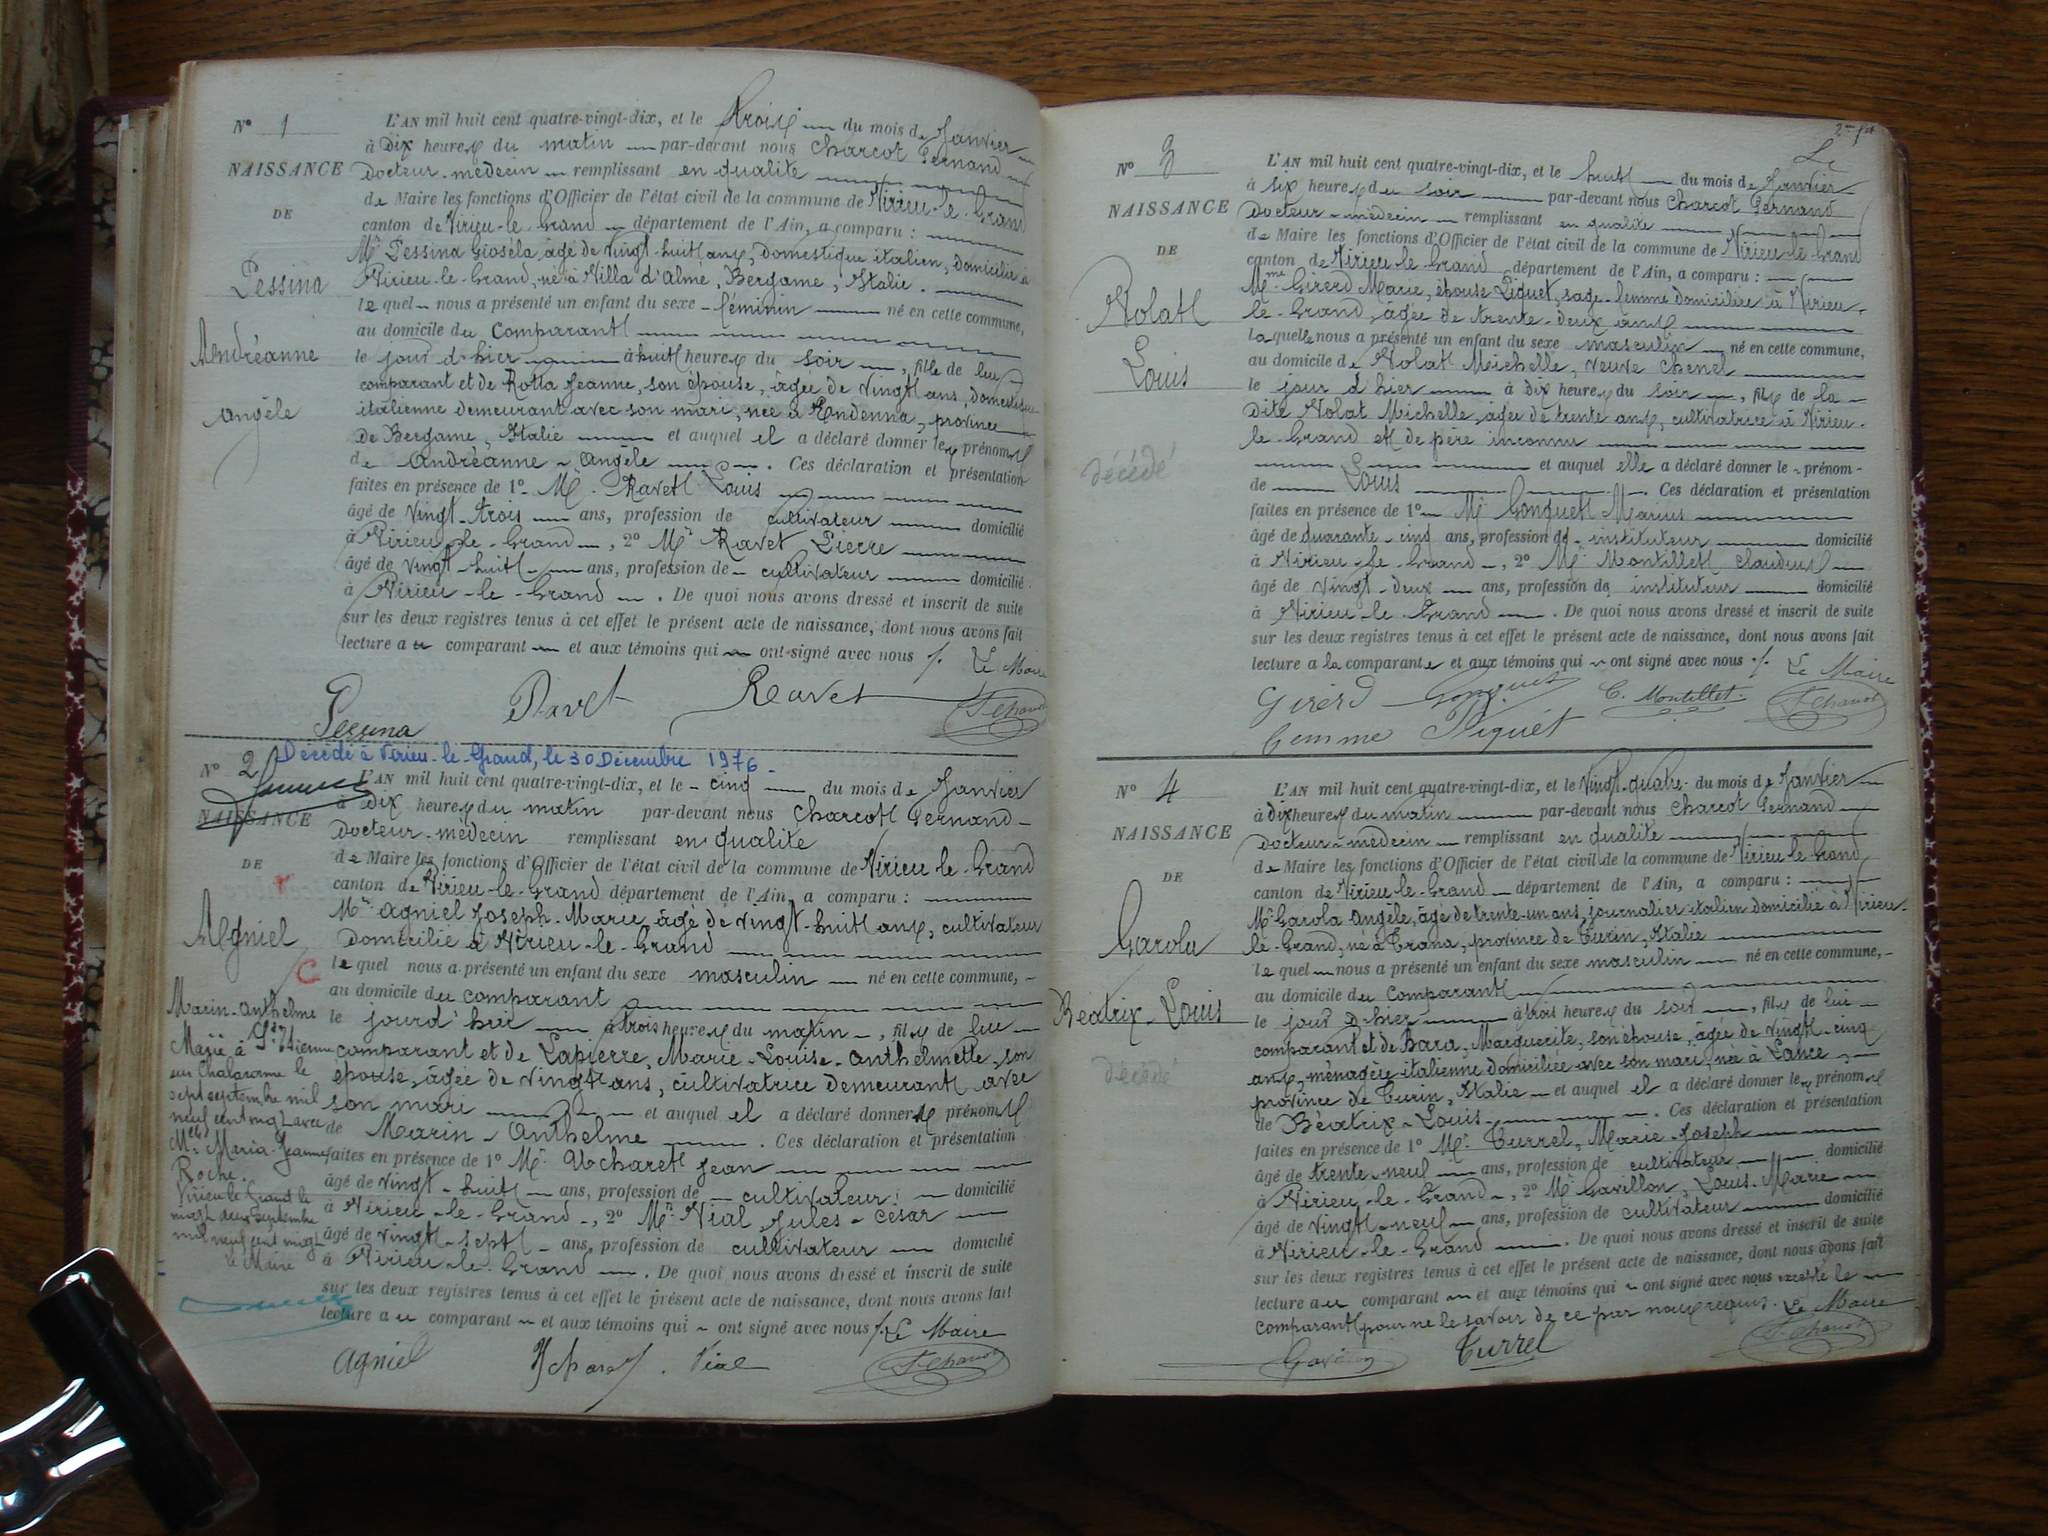 N° 1
NAISSANCE
DE
Pessina
Andréanne
Angèle
L'AN mil huit cent quatre-vingt-dix, et le trois du mois de Janvier
à dix heures du matin par-devant nous Charcot Fernand
Docteur-médecin remplissant en qualité
de Maire les fonctions d'Officier de l'état civil de la commune de Virieu-le-Grand
canton de Virieu-le-Grand département de l'Ain, a comparu :
Mr Pessina Gioséla, âgé de vingt-huit ans, domestique italien, domicilié à
Virieu-le-Grand, né à Villa d'Almé, Bergame, Italie.
lequel nous a présenté un enfant du sexe féminin né en cette commune,
au domicile du comparant
le jour d'hier à huit heures du soir, fille de lui
comparant et de Rotta Jeanne, son épouse, âgée de vingt ans, domestique
italienne demeurant avec son mari, née à Endenna, province
de Bergame, Italie et auquel il a déclaré donner les prénoms
de Andréanne-Angèle. Ces déclaration et présentation
faites en présence de 1° Mr Ravet Louis
âgé de vingt-trois ans, profession de cultivateur domicilié
à Virieu-le-Grand, 2° Mr Ravet Pierre
âgé de vingt-huit ans, profession de cultivateur domicilié
à Virieu-le-Grand. De quoi nous avons dressé et inscrit de suite
sur les deux registres tenus à cet effet le présent acte de naissance, dont nous avons fait
lecture au comparant et aux témoins qui ont signé avec nous Le Maire
Pessina Ravet Ravet F. Charcot
Décédé à Virieu-le-Grand, le 30 Décembre 1976
N° 2
NAISSANCE
DE
Agniel
C
Marin-Anthelme
Marié à St Etienne
sur Chalaronne le
sept septembre mil
neuf cent vingt avec
Melle Maria-Jeanne
Roche.
Virieu le Grand le
vingt deux septembre
mil neuf cent vingt
le Maire
L'AN mil huit cent quatre-vingt-dix, et le cinq du mois de Janvier
à dix heures du matin par-devant nous Charcot Fernand
Docteur-médecin remplissant en qualité
de Maire les fonctions d'Officier de l'état civil de la commune de Virieu-le-Grand
canton de Virieu-le-Grand département de l'Ain, a comparu :
Mr Agniel Joseph-Marie, âgé de vingt-huit ans, cultivateur
domicilié à Virieu-le-Grand
lequel nous a présenté un enfant du sexe masculin né en cette commune,
au domicile du comparant
le jourd'hui à trois heures du matin, fils de lui
comparant et de Lapierre, Marie-Louise-Anthelmette, son
épouse, âgée de vingt ans, cultivatrice demeurant avec
son mari et auquel il a déclaré donner les prénoms
de Marin-Anthelme. Ces déclaration et présentation
faites en présence de 1° Mr Ucharet Jean
âgé de vingt-huit ans, profession de cultivateur domicilié
à Virieu-le-Grand, 2° Mr Vial Jules-César
âgé de vingt-sept ans, profession de cultivateur domicilié
à Virieu-le-Grand. De quoi nous avons dressé et inscrit de suite
sur les deux registres tenus à cet effet le présent acte de naissance, dont nous avons fait
lecture au comparant et aux témoins qui ont signé avec nous Le Maire
Agniel Vial F. Charcot
N° 3
NAISSANCE
DE
Nolat
Louis
décédé
L'AN mil huit cent quatre-vingt-dix, et le huit du mois de Janvier
à six heures du soir par-devant nous Charcot Fernand
Docteur-médecin remplissant en qualité
de Maire les fonctions d'Officier de l'état civil de la commune de Virieu-le-Grand
canton de Virieu-le-Grand département de l'Ain, a comparu :
Mme Girerd Marie, épouse Piguet, sage-femme domiciliée à Virieu-
le-Grand, âgée de trente-deux ans
laquelle nous a présenté un enfant du sexe masculin né en cette commune,
au domicile de Nolat Michelle, veuve Chenel
le jour d'hier à dix heures du soir, fils de la
dite Nolat Michelle, âgée de trente ans, cultivatrice à Virieu-
le-Grand et de père inconnu
et auquel elle a déclaré donner le prénom
de Louis. Ces déclaration et présentation
faites en présence de 1° Mr Gonguet Marius
âgé de quarante-cinq ans, profession d'instituteur domicilié
à Virieu-le-Grand, 2° Mr Montillet Claudius
âgé de vingt-deux ans, profession de instituteur domicilié
à Virieu-le-Grand. De quoi nous avons dressé et inscrit de suite
sur les deux registres tenus à cet effet le présent acte de naissance, dont nous avons fait
lecture a la comparante et aux témoins qui ont signé avec nous Le Maire
Girerd Gonguet C. Montillet F. Charcot
femme Piguet
N° 4
NAISSANCE
DE
Garola
Béatrix-Louis
décédé
L'AN mil huit cent quatre-vingt-dix, et le vingt-quatre du mois de Janvier
à dix heures du matin par-devant nous Charcot Fernand
Docteur-médecin remplissant en qualité
de Maire les fonctions d'Officier de l'état civil de la commune de Virieu-le-Grand
canton de Virieu-le-Grand département de l'Ain, a comparu :
Mr Garola Angèle, âgé de trente-un ans, journalier italien domicilié à Virieu-
le-Grand, né à Trana, province de Turin, Italie
lequel nous a présenté un enfant du sexe masculin né en cette commune,
au domicile du comparant
le jour d'hier à trois heures du soir, fils de lui
comparant et de Bara, Marguerite, son épouse, âgée de vingt-cinq
ans, ménagère italienne domiciliée avec son mari, née à Lance,
province de Turin, Italie et auquel il a déclaré donner les prénoms
de Béatrix-Louis. Ces déclaration et présentation
faites en présence de 1° Mr Turrel, Marie-Joseph
âgé de trente-neuf ans, profession de cultivateur domicilié
à Virieu-le-Grand, 2° Mr Gavillon, Louis-Marie
âgé de vingt-neuf ans, profession de cultivateur domicilié
à Virieu-le-Grand. De quoi nous avons dressé et inscrit de suite
sur les deux registres tenus à cet effet le présent acte de naissance, dont nous avons fait
lecture au comparant et aux témoins qui ont signé avec nous excepté le
comparant pour ne le savoir de ce par nous requis. Le Maire
Gavillon Turrel F. Charcot